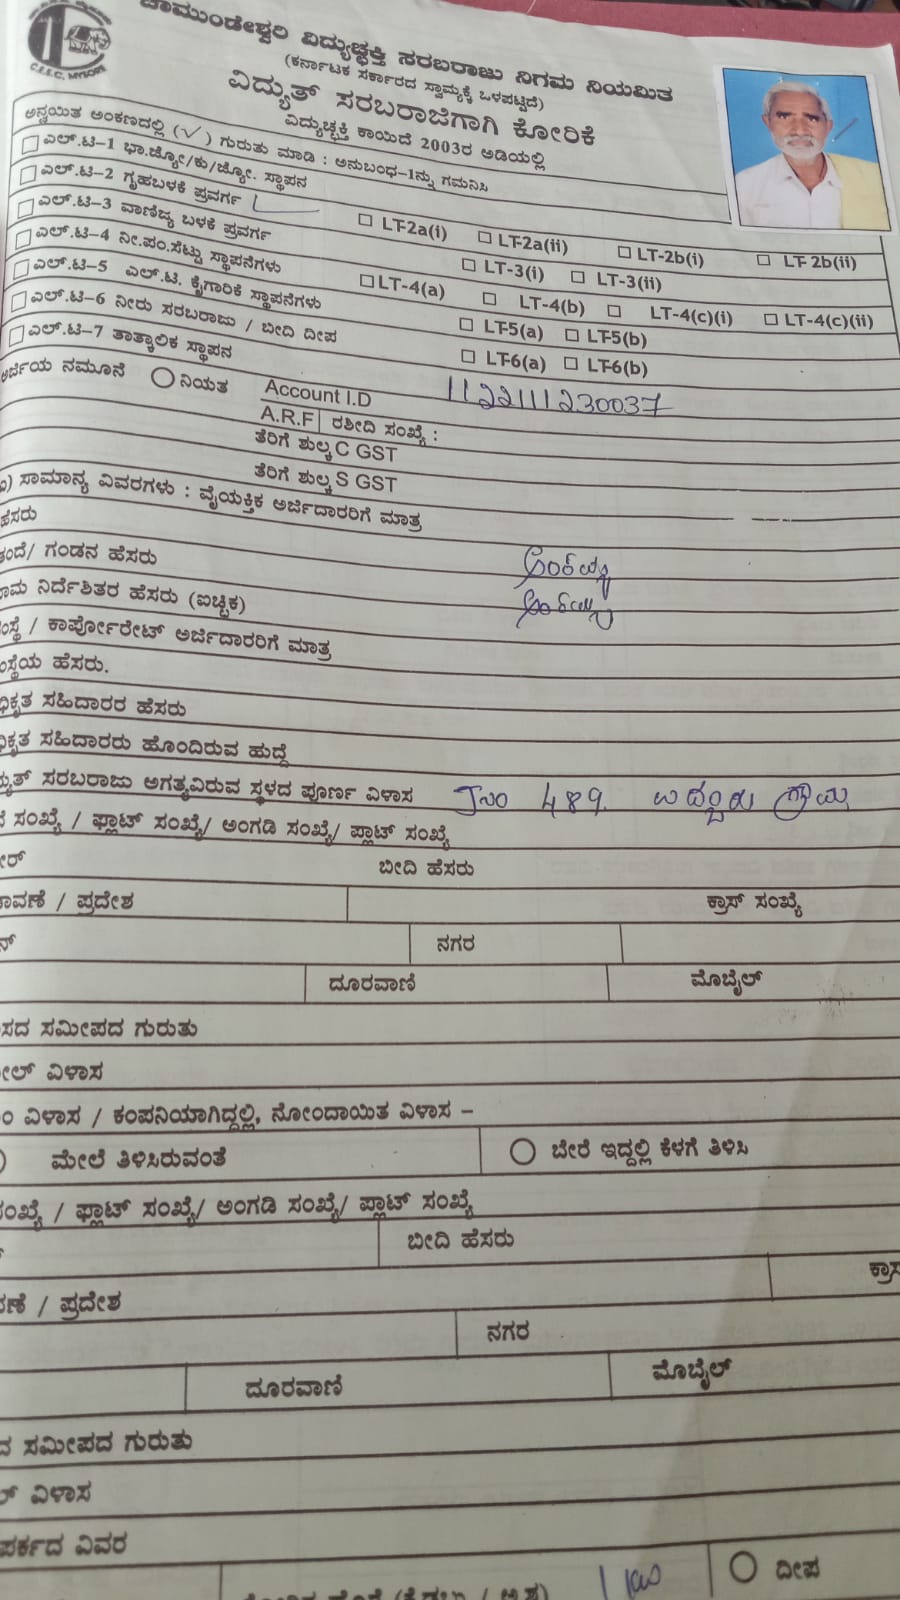 ಚಾಮುಂಡೇಶ್ವರಿ ವಿದ್ಯುಚ್ಛಕ್ತಿ ಸರಬರಾಜು ನಿಗಮ ನಿಯಮಿತ
(ಕರ್ನಾಟಕ ಸರ್ಕಾರದ ಸ್ವಾಮ್ಯಕ್ಕೆ ಒಳಪಟ್ಟಿದೆ)
C.E.S.C. MYSORE
ವಿದ್ಯುತ್ ಸರಬರಾಜಿಗಾಗಿ ಕೋರಿಕೆ
ವಿದ್ಯುಚ್ಛಕ್ತಿ ಕಾಯಿದೆ 2003ರ ಅಡಿಯಲ್ಲಿ
ಅನ್ವಯಿತ ಅಂಕಣದಲ್ಲಿ (✓) ಗುರುತು ಮಾಡಿ : ಅನುಬಂಧ-1ನ್ನು ಗಮನಿಸಿ
ಎಲ್.ಟಿ-1 ಭಾ.ಜ್ಯೋ/ಕು/ಜ್ಯೋ. ಸ್ಥಾಪನ
ಎಲ್.ಟಿ-2 ಗೃಹಬಳಕೆ ಪ್ರವರ್ಗ LT-2a(i) LT-2a(ii) LT-2b(i) LT-2b(ii)
ಎಲ್.ಟಿ-3 ವಾಣಿಜ್ಯ ಬಳಕೆ ಪ್ರವರ್ಗ LT-3(i) LT-3(ii)
ಎಲ್.ಟಿ-4 ನೀ.ಪಂ.ಸೆಟ್ಟು ಸ್ಥಾಪನೆಗಳು LT-4(a) LT-4(b) LT-4(c)(i) LT-4(c)(ii)
ಎಲ್.ಟಿ-5 ಎಲ್.ಟಿ. ಕೈಗಾರಿಕೆ ಸ್ಥಾಪನೆಗಳು LT-5(a) LT-5(b)
ಎಲ್.ಟಿ-6 ನೀರು ಸರಬರಾಜು / ಬೀದಿ ದೀಪ LT-6(a) LT-6(b)
ಎಲ್.ಟಿ-7 ತಾತ್ಕಾಲಿಕ ಸ್ಥಾಪನ
ಅರ್ಜಿಯ ನಮೂನೆ ನಿಯತ Account I.D 1122111230037
A.R.F ರಶೀದಿ ಸಂಖ್ಯೆ :
ತೆರಿಗೆ ಶುಲ್ಕ C GST
ತೆರಿಗೆ ಶುಲ್ಕ S GST
ಸಾಮಾನ್ಯ ವಿವರಗಳು : ವೈಯಕ್ತಿಕ ಅರ್ಜಿದಾರರಿಗೆ ಮಾತ್ರ
ಹೆಸರು
ತಂದೆ/ ಗಂಡನ ಹೆಸರು
ನಾಮ ನಿರ್ದೆಶಿತರ ಹೆಸರು (ಐಚ್ಚಿಕ)
ಸಂಸ್ಥೆ / ಕಾರ್ಪೋರೇಟ್ ಅರ್ಜಿದಾರರಿಗೆ ಮಾತ್ರ
ಸಂಸ್ಥೆಯ ಹೆಸರು.
ಅಧಿಕೃತ ಸಹಿದಾರರ ಹೆಸರು
ಅಧಿಕೃತ ಸಹಿದಾರರು ಹೊಂದಿರುವ ಹುದ್ದೆ
ವಿದ್ಯುತ್ ಸರಬರಾಜು ಅಗತ್ಯವಿರುವ ಸ್ಥಳದ ಪೂರ್ಣ ವಿಳಾಸ 489. ಗ್ರಾಮ
ಸಂಖ್ಯೆ / ಫ್ಲಾಟ್ ಸಂಖ್ಯೆ/ ಅಂಗಡಿ ಸಂಖ್ಯೆ/ ಪ್ಲಾಟ್ ಸಂಖ್ಯೆ
ಬೀದಿ ಹೆಸರು
ಬಡಾವಣೆ / ಪ್ರದೇಶ ಕ್ರಾಸ್ ಸಂಖ್ಯೆ
ನಗರ
ದೂರವಾಣಿ ಮೊಬೈಲ್
ಸಮೀಪದ ಗುರುತು
ವಿಳಾಸ
ವಿಳಾಸ / ಕಂಪನಿಯಾಗಿದ್ದಲ್ಲಿ, ನೋಂದಾಯಿತ ವಿಳಾಸ –
ಮೇಲೆ ತಿಳಿಸಿರುವಂತೆ ಬೇರೆ ಇದ್ದಲ್ಲಿ ಕೆಳಗೆ ತಿಳಿಸಿ
ಸಂಖ್ಯೆ / ಫ್ಲಾಟ್ ಸಂಖ್ಯೆ/ ಅಂಗಡಿ ಸಂಖ್ಯೆ/ ಪ್ಲಾಟ್ ಸಂಖ್ಯೆ
ಬೀದಿ ಹೆಸರು
/ ಪ್ರದೇಶ ಕ್ರಾಸ
ನಗರ
ದೂರವಾಣಿ ಮೊಬೈಲ್
ಸಮೀಪದ ಗುರುತು
ವಿಳಾಸ
ವಿವರ
ದೀಪ